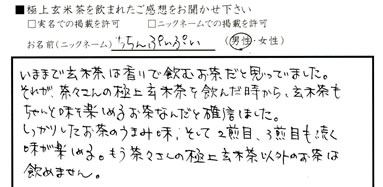 ■極上玄米茶を飲まれたご感想をお聞かせ下さい
□実名での掲載を許可　□ニックネームでの掲載を許可
お名前(ニックネーム) ちちんぷいぷい (男性・女性)
いままで玄米茶は香りで飲むお茶だと思ってました。
それが、茶々さんの極上玄米茶を飲んだ時から、玄米茶も
ちゃんと味を楽しめるお茶なんだと確信しました。
しっかりしたお茶のうまみ味、そして2煎目、3煎目も濃く
味が楽しめる。もう茶々さんの極上玄米茶以外のお茶は
飲めません。